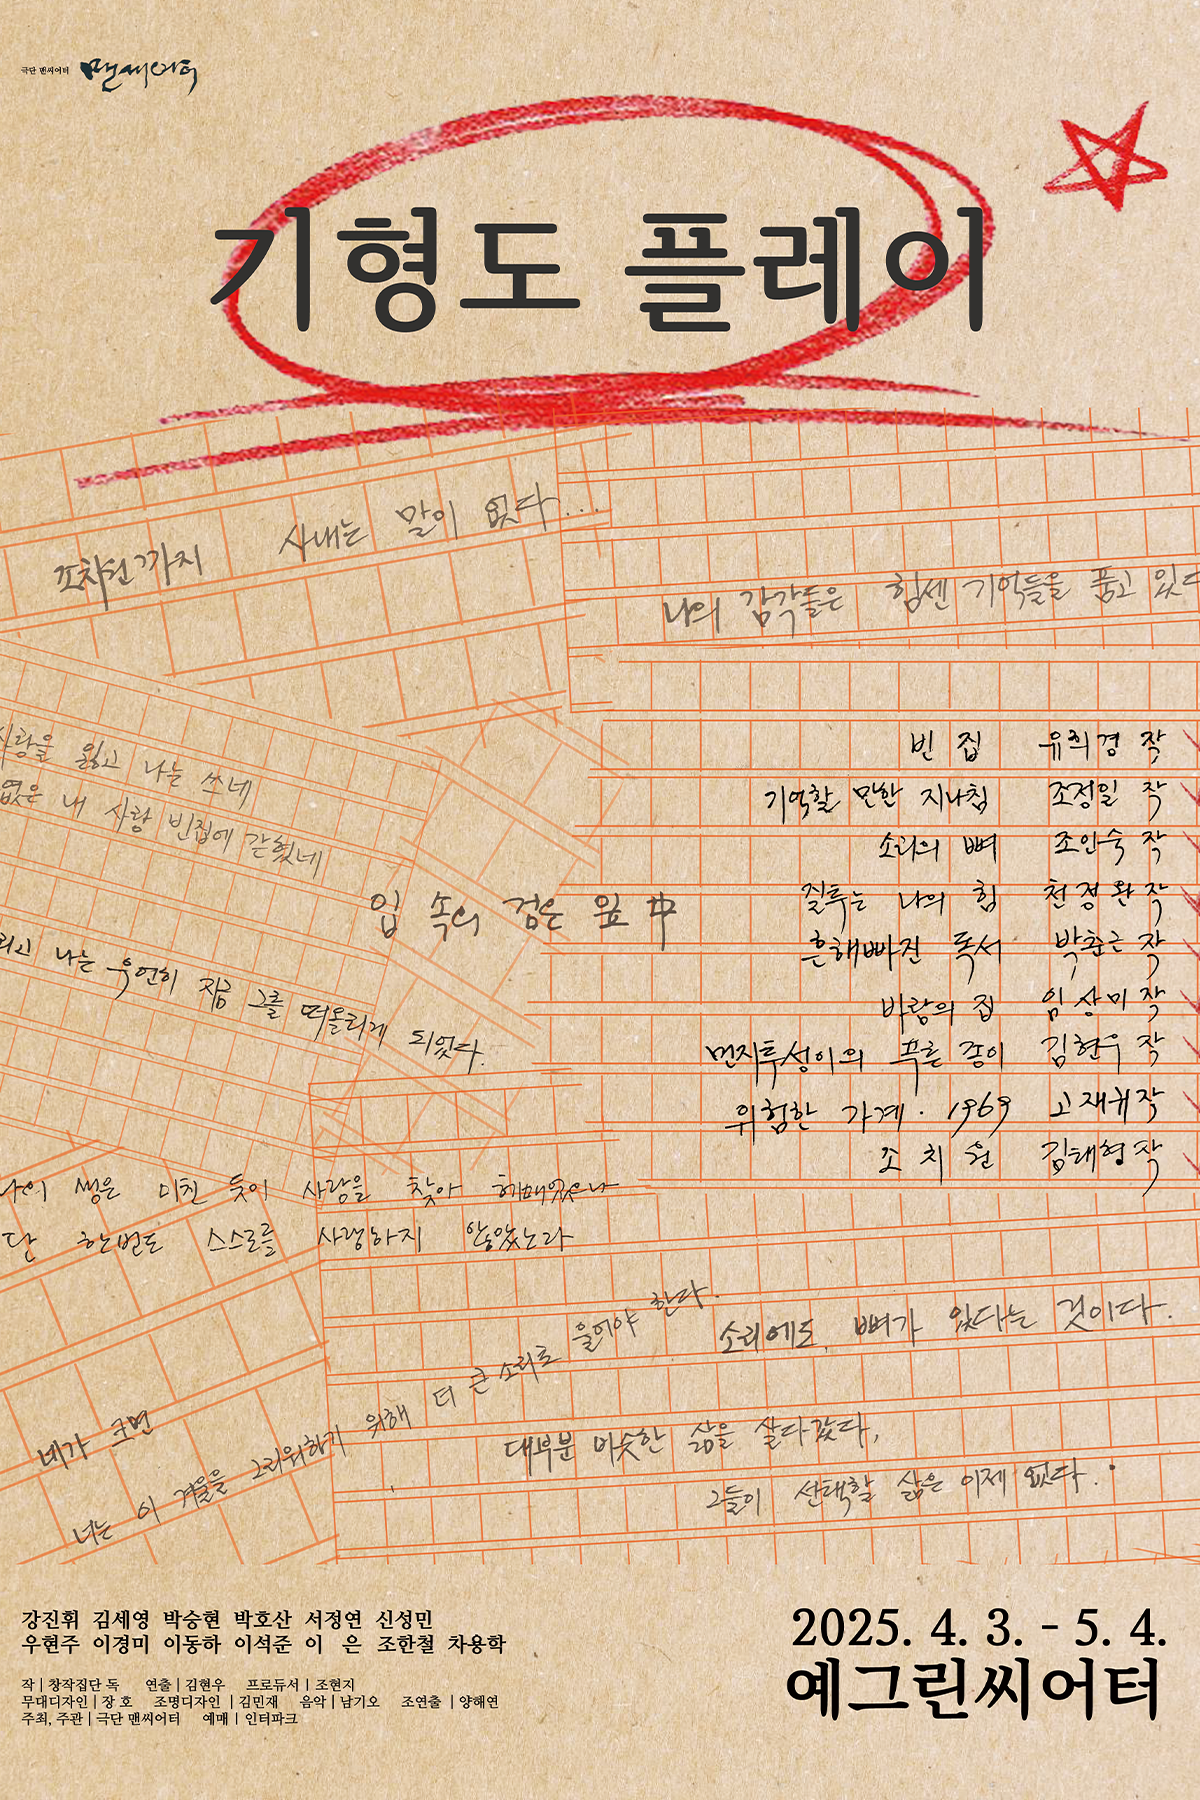 극단 맨씨어터 맨씨어터
기형도 플레이
조치원까지 사내는 말이 없다...
나의 감각들은 힘센 기억들을 품고 있다
사랑을 잃고 나는 쓰네
엾은 내 사랑 빈집에 갇혔네
빈 집 유희경 작
기억할 만한 지나침 조정일 작
소리의 뼈 조인숙 작
질투는 나의 힘 천정완 작
흔해빠진 독서 박춘근 작
바람의 집 임상미 작
먼지투성이의 푸른 종이 김현우 작
위험한 가계·1969 고재귀 작
조 치 원 김태형 작
입 속의 검은 잎 中
리고 나는 우연히 지금 그를 떠올리게 되었다.
나의 생은 미친 듯이 사랑을 찾아 헤매었으나
단 한번도 스스로를 사랑하지 않았노라
네가 크면
너는 이 겨울을 그리워하기 위해 더 큰 소리로 울어야 한다.
소리에도 뼈가 있다는 것이다.
대부분 비슷한 삶을 살다 갔다,
그들이 선택할 삶은 이제 없다.
강진휘 김세영 박승현 박호산 서정연 신성민
우현주 이경미 이동하 이석준 이 은 조한철 차용학
작 | 창작집단 독 연출 | 김현우 프로듀서 | 조현지
무대디자인 | 장 호 조명디자인 | 김민재 음악 | 남기오 조연출 | 양해연
주최, 주관 | 극단 맨씨어터 예매 | 인터파크
2025. 4. 3. - 5. 4.
예그린씨어터